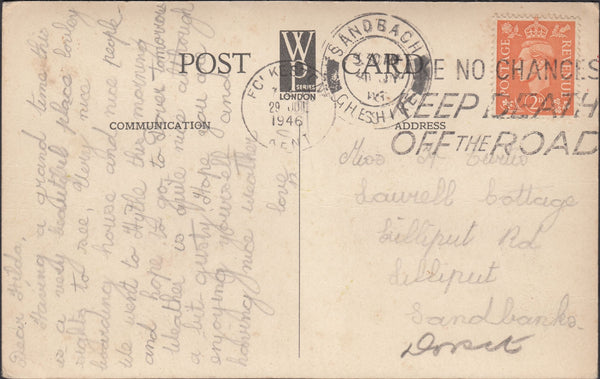 POST CARD
WB
SERIES
LONDON
COMMUNICATION
ADDRESS
FOLKESTONE
29 JUL
1946
KENT
SANDBACH
CHESHIRE
TAKE NO CHANCES
KEEP DEATH
OFF THE ROAD
POSTAGE REVENUE
2D
Dear Hilda,
Having a grand time this
is a very beautiful place lovely
sights to see. Very nice
boarding house and nice people
We went to Hythe this morning
and hope to go to Dover tomorrow
Weather is quite nice although
a bit gusty. Hope you are
enjoying yourself and
having nice weather
love
Miss H
Laurell Cottage
Lilliput Rd
Lilliput
Sandbanks.
Dorset